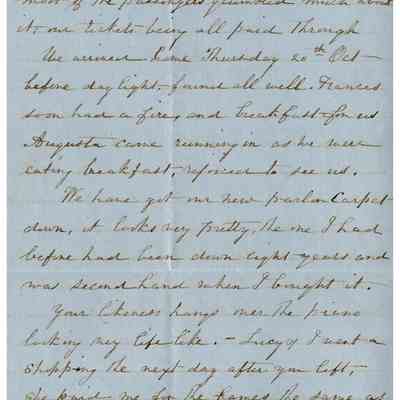 most of the passengers grumbled much about
it, our tickets being all paid through
We arrived home Thursday 20th Oct
before day light, found all well. Frances
soon had a fire, and breakfast for us
Augusta came running in as we were
eating breakfast, rejoiced to see us.
We have got our new parlor Carpet
down, it looks very pretty, the one I had
before had been down eight years and
was second hand when I bought it.
Your likeness hangs over the piano
looking very life like. - Lucy & I went a
shopping the next day after you left,
she paid me for the frames the same as